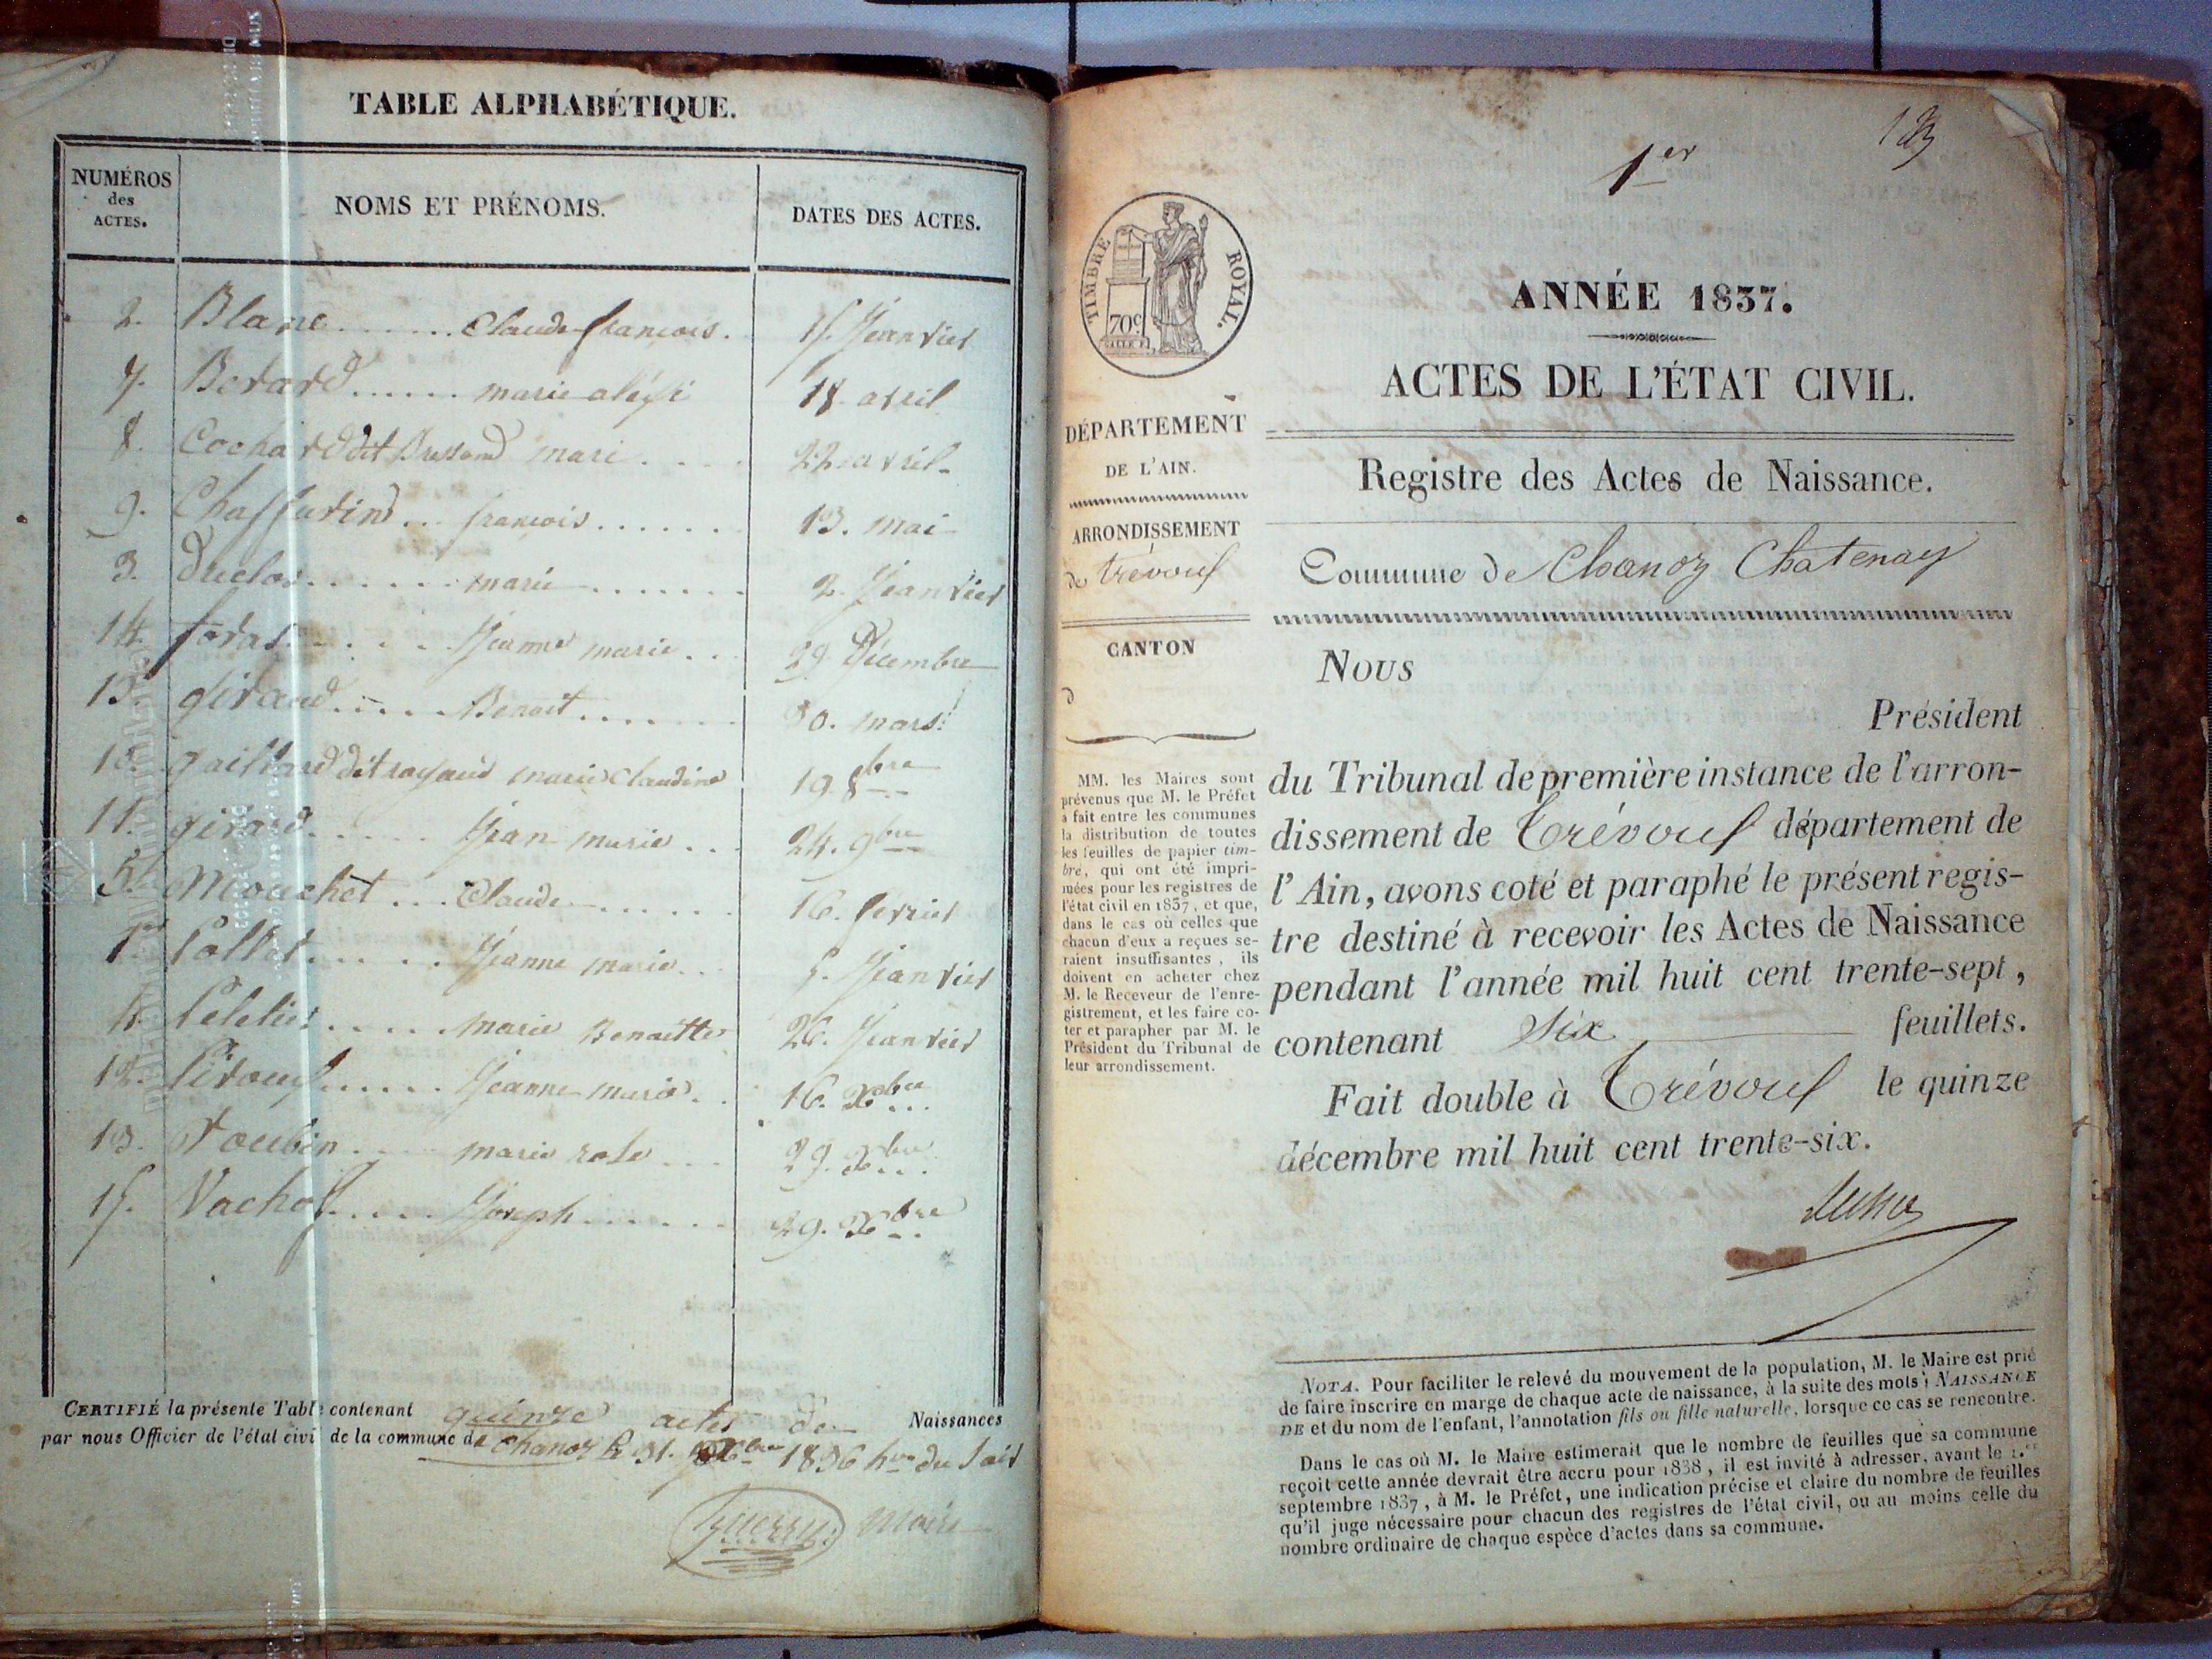 TABLE ALPHABÉTIQUE.
NUMÉROS des ACTES.
NOMS ET PRÉNOMS.
DATES DES ACTES.
2. Blanc ....... Claude francois. 15. Jeanvier
7. Berard ...... marie 18 avril
8. Cochard dit Bressand mari .... 22 avril
9. Chaffurin ... francois ...... 13. mai
3. Duclos ....... marie ....... 2. Jeanvier
14. foras ..... Jeanne marie ... 29 Décembre
Giraud ..... Benoit ....... 30. mars.
10. gaillard dit marie Claudine 19 8bre
11. girard ..... Jean marie ... 24. 9bre
5. Mouchet ... Claude ...... 16. fevrier
1er Pollet ..... Jeanne marie ... 5. Jeanvier
4. Peletier ..... Marie Benoitte 26. Jeanvier
12. Piroux ..... Jeanne marie .. 16. Xbre
13. Toubin ..... marie rose ... 29. Xbre
15. Vachot ..... Joseph ...... 29. Xbre
CERTIFIÉ la présente Table contenant quinze actes de Naissances
par nous Officier de l'état civil de la commune de Chanoz le 31. Xbre 1836 hre du soir
Guerry maire
1er
TIMBRE ROYAL.
70c
DÉPARTEMENT
DE L'AIN.
ARRONDISSEMENT
de trévoux
CANTON
d
MM. les Maires sont
prévenus que M. le Préfet
a fait entre les communes
la distribution de toutes
les feuilles de papier tim-
bre, qui ont été impri-
mées pour les registres de
l'état civil en 1837, et que,
dans le cas où celles que
chacun d'eux a reçues se-
raient insuffisantes, ils
doivent en acheter chez
M. le Receveur de l'enre-
gistrement, et les faire co-
ter et parapher par M. le
Président du Tribunal de
leur arrondissement.
ANNÉE 1837.
ACTES DE L'ÉTAT CIVIL.
Registre des Actes de Naissance.
Commune de Chanoz Chatenay
Nous
Président
du Tribunal de première instance de l'arron-
dissement de Trévoux département de
l'Ain, avons coté et paraphé le présent regis-
tre destiné à recevoir les Actes de Naissance
pendant l'année mil huit cent trente-sept,
contenant Six feuillets.
Fait double à Trévoux le quinze
décembre mil huit cent trente-six.
NOTA. Pour faciliter le relevé du mouvement de la population, M. le Maire est prié
de faire inscrire en marge de chaque acte de naissance, à la suite des mots; NAISSANCE
DE et du nom de l'enfant, l'annotation fils ou fille naturelle, lorsque ce cas se rencontre.
Dans le cas où M. le Maire estimerait que le nombre de feuilles que sa commune
reçoit cette année devrait être accru pour 1838, il est invité à adresser, avant le 1.er
septembre 1837, à M. le Préfet, une indication précise et claire du nombre de feuilles
qu'il juge nécessaire pour chacun des registres de l'état civil, ou au moins celle du
nombre ordinaire de chaque espèce d'actes dans sa commune.